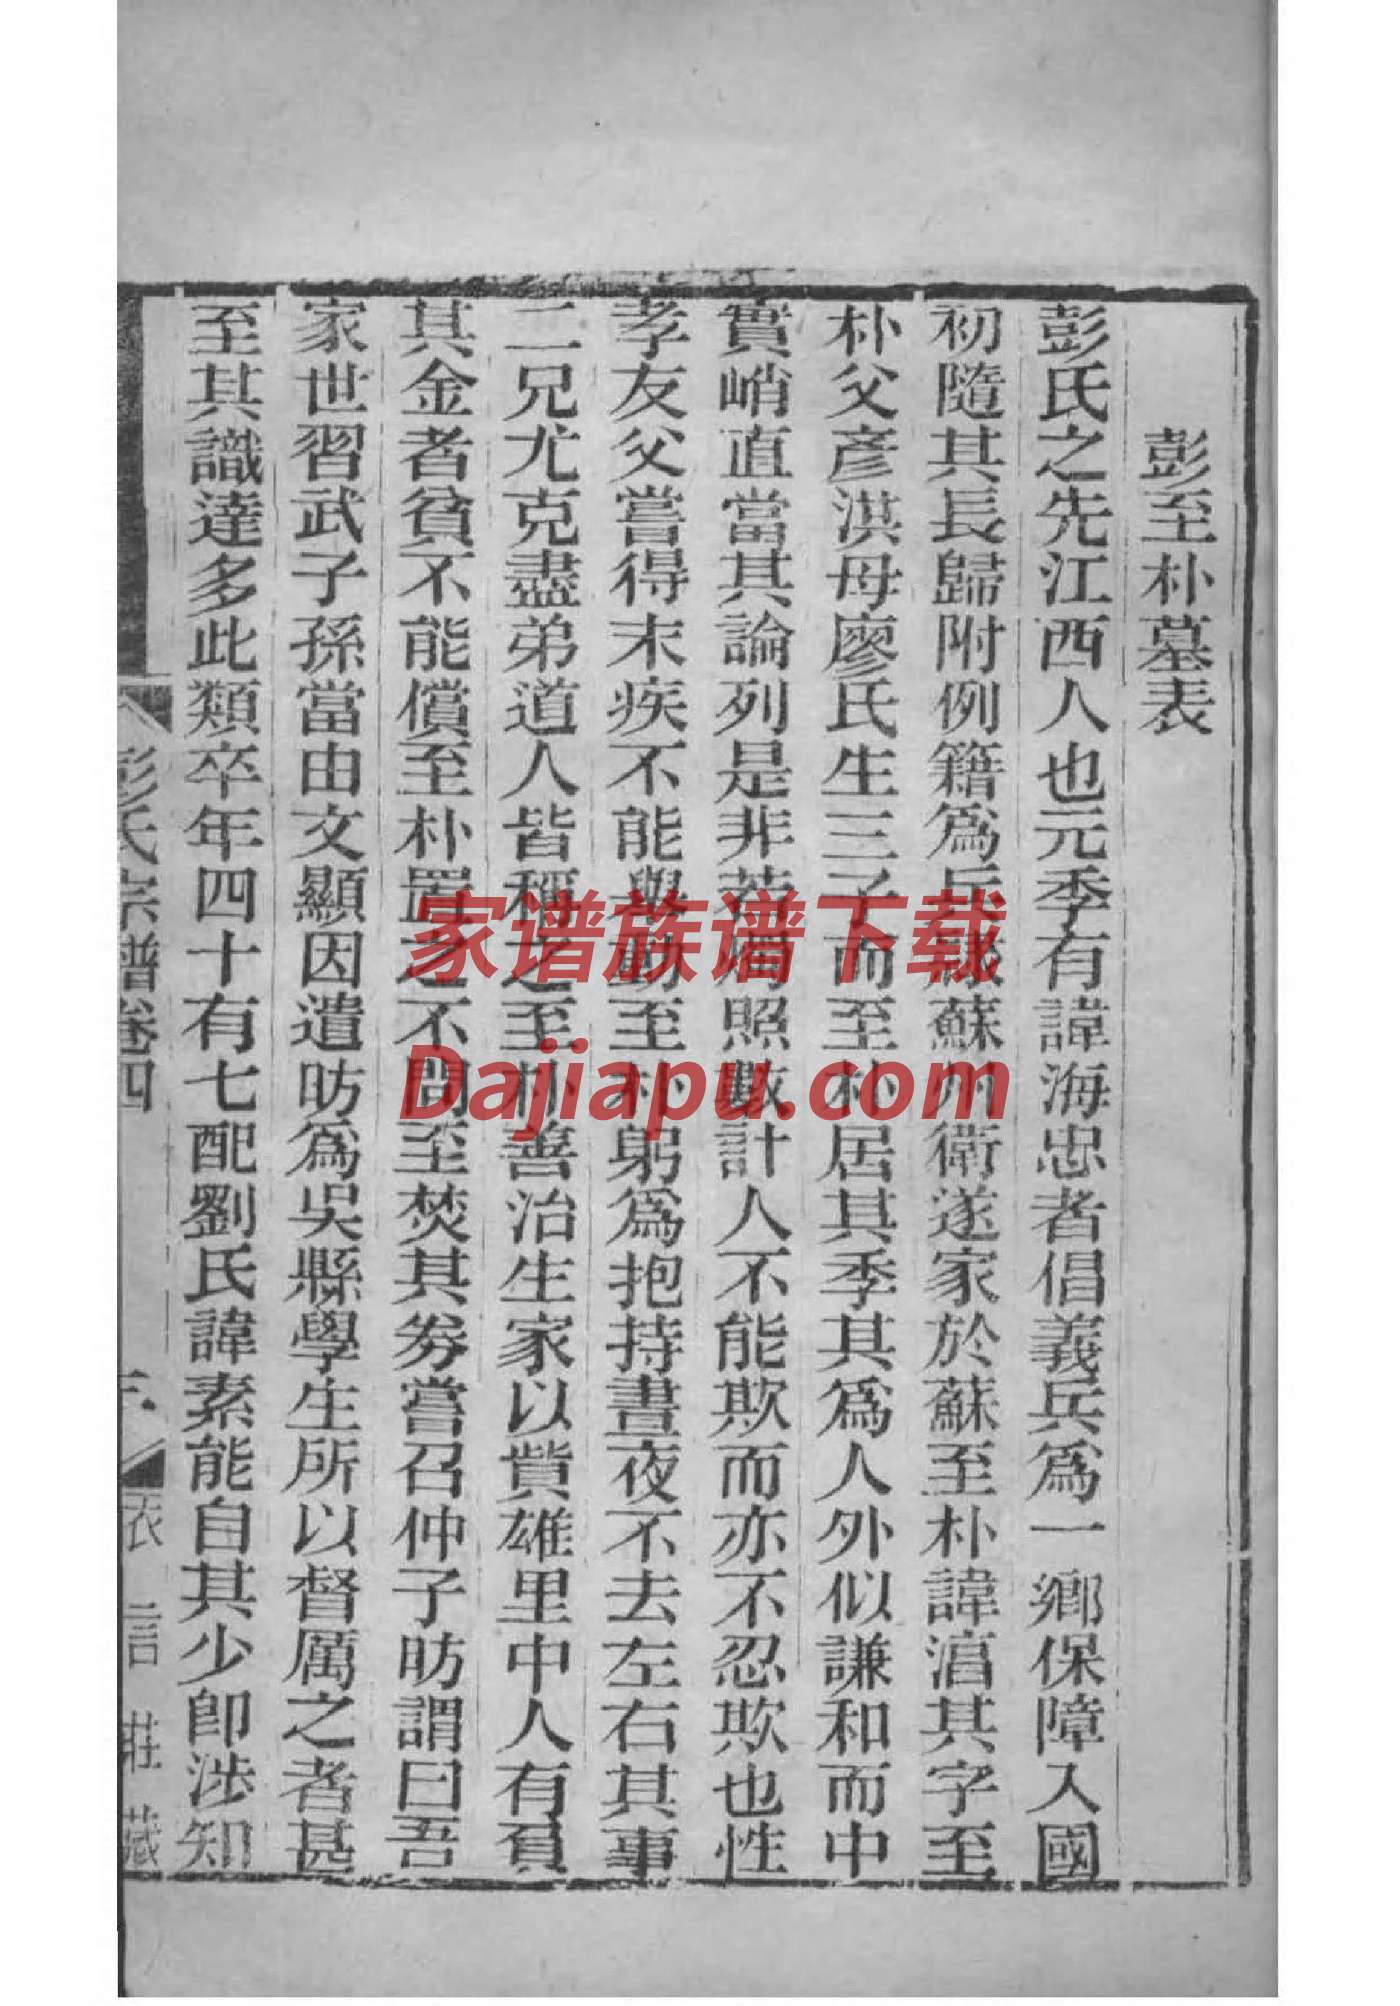 彭至朴墓表
彭氏之先江西人也元季有諱海忠者倡義兵爲一鄉保障入國
初隨其長歸附例籍爲兵隸蘇州衛遂家於蘇至朴諱淓其字至
朴父彥洪母廖氏生三子而至朴居其季其爲人外似謙和而中
實峭直當其論列是非若燭照數計人不能欺而亦不忍欺也性
孝友父嘗得末疾不能舉動至朴躬爲抱持晝夜不去左右其事
二兄尤克盡弟道人皆稱之至朴善治生家以貲雄里中人有負
其金者貧不能償至朴置之不問至焚其券嘗召仲子昉謂曰吾
家世習武子孫當由文顯因遣昉爲吳縣學生所以督厲之者甚
至其識達多此類卒年四十有七配劉氏諱素能自其少卽涉知
彭氏宗譜卷四
衣言莊藏
家谱族谱下载
Dajiapu.com